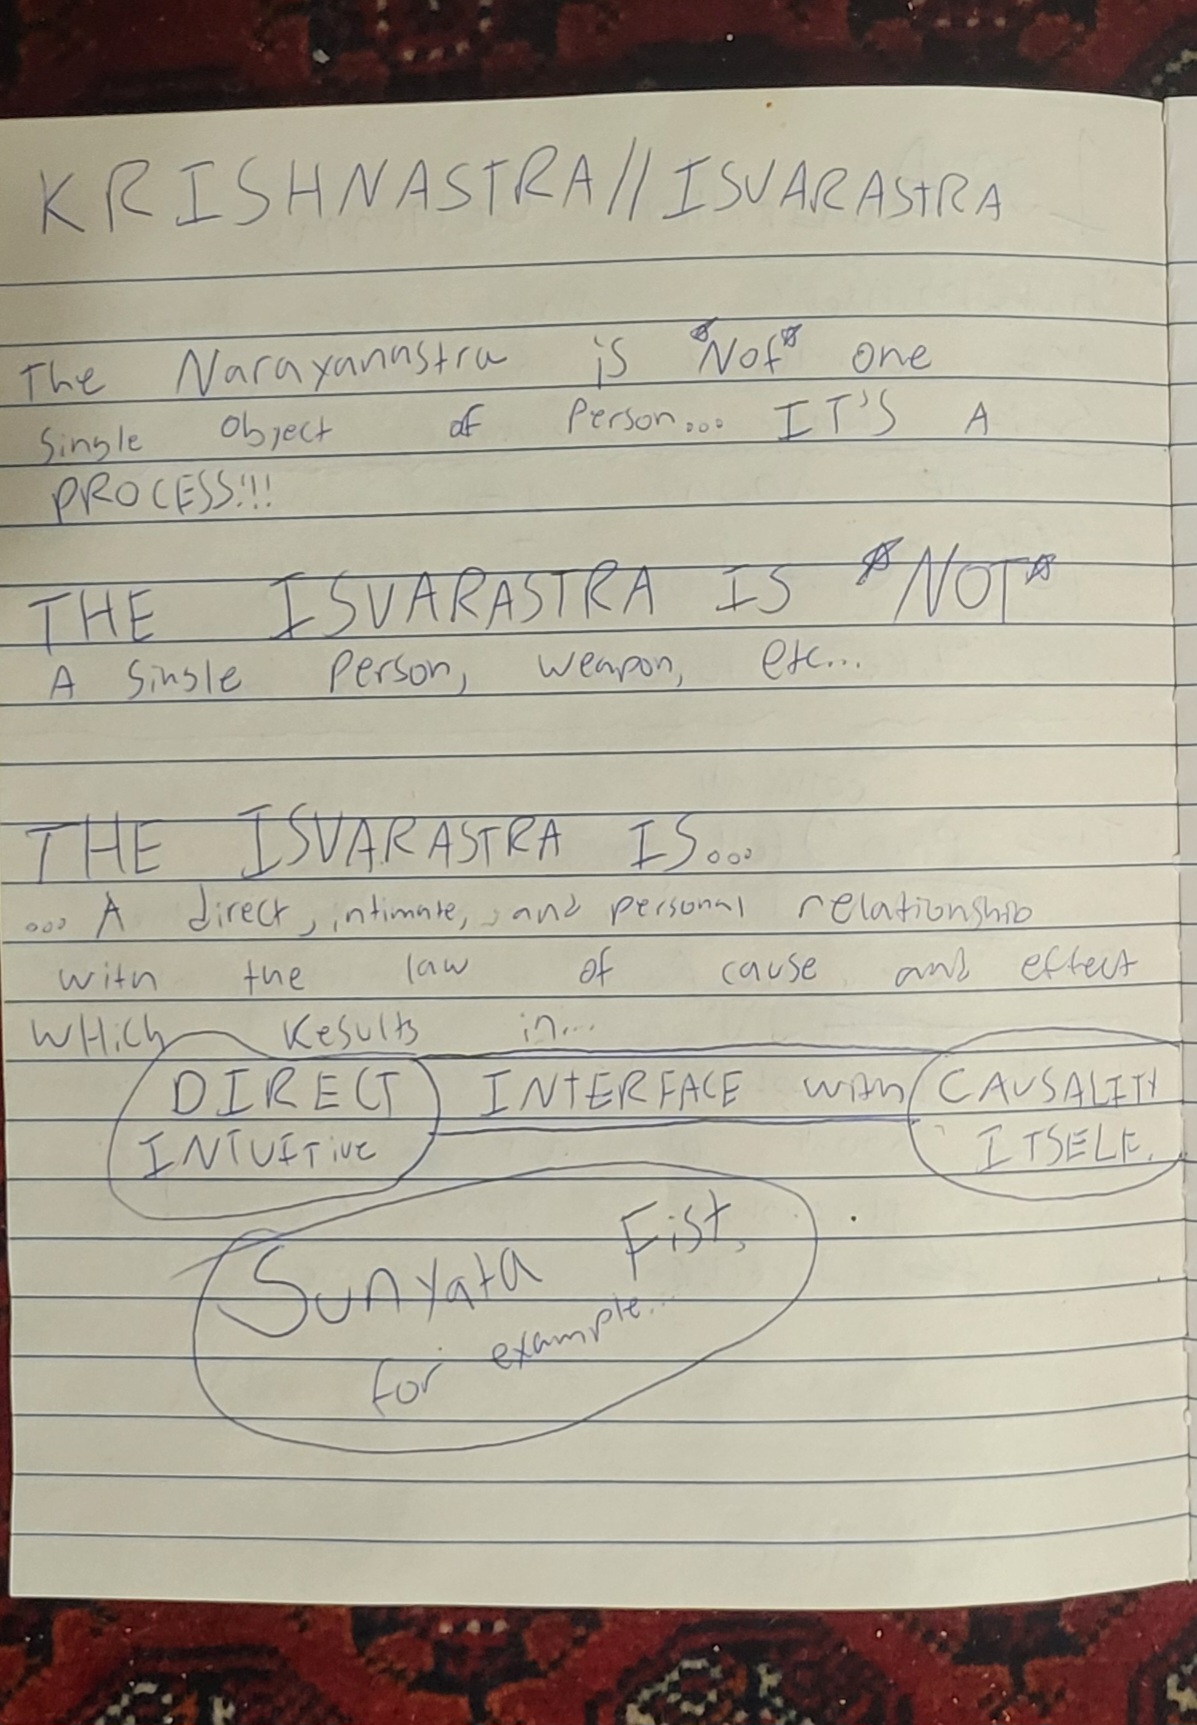 KRISHNASTRA//ISVARASTRA
The Narayanastra is *Not* one
Single Object of Person... IT'S A
PROCESS!!!
THE ISVARASTRA IS *NOT*
A Single Person, weapon, etc...
THE ISVARASTRA IS...
... A direct, intimate, and personal relationship
with the law of cause and effect
WHich Results in...
DIRECT INTERFACE with CAUSALITY
INTUITive ITSELF.
Sunyata Fist,
for example...